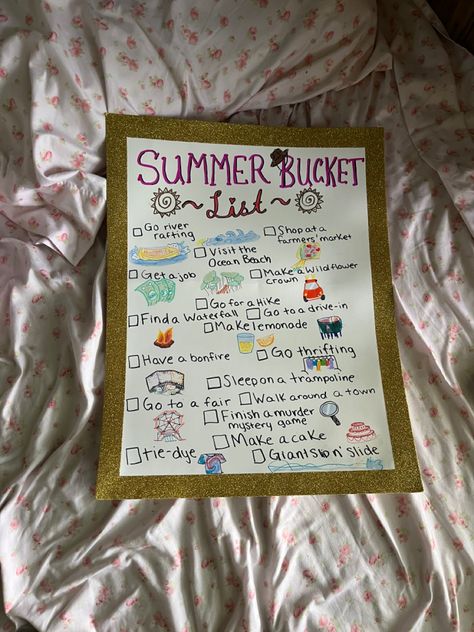 SUMMER BUCKET
~ List ~
Go river rafting
Visit the Ocean Beach
Shop at a farmers' market
Get a job
Make a wildflower crown
Go for a Hike
Find a Waterfall
Go to a drive-in
Make lemonade
Have a bonfire
Go thrifting
Sleep on a trampoline
Go to a fair
Walk around a town
Finish a murder mystery game
Make a cake
tie-dye
Giant slip n' slide